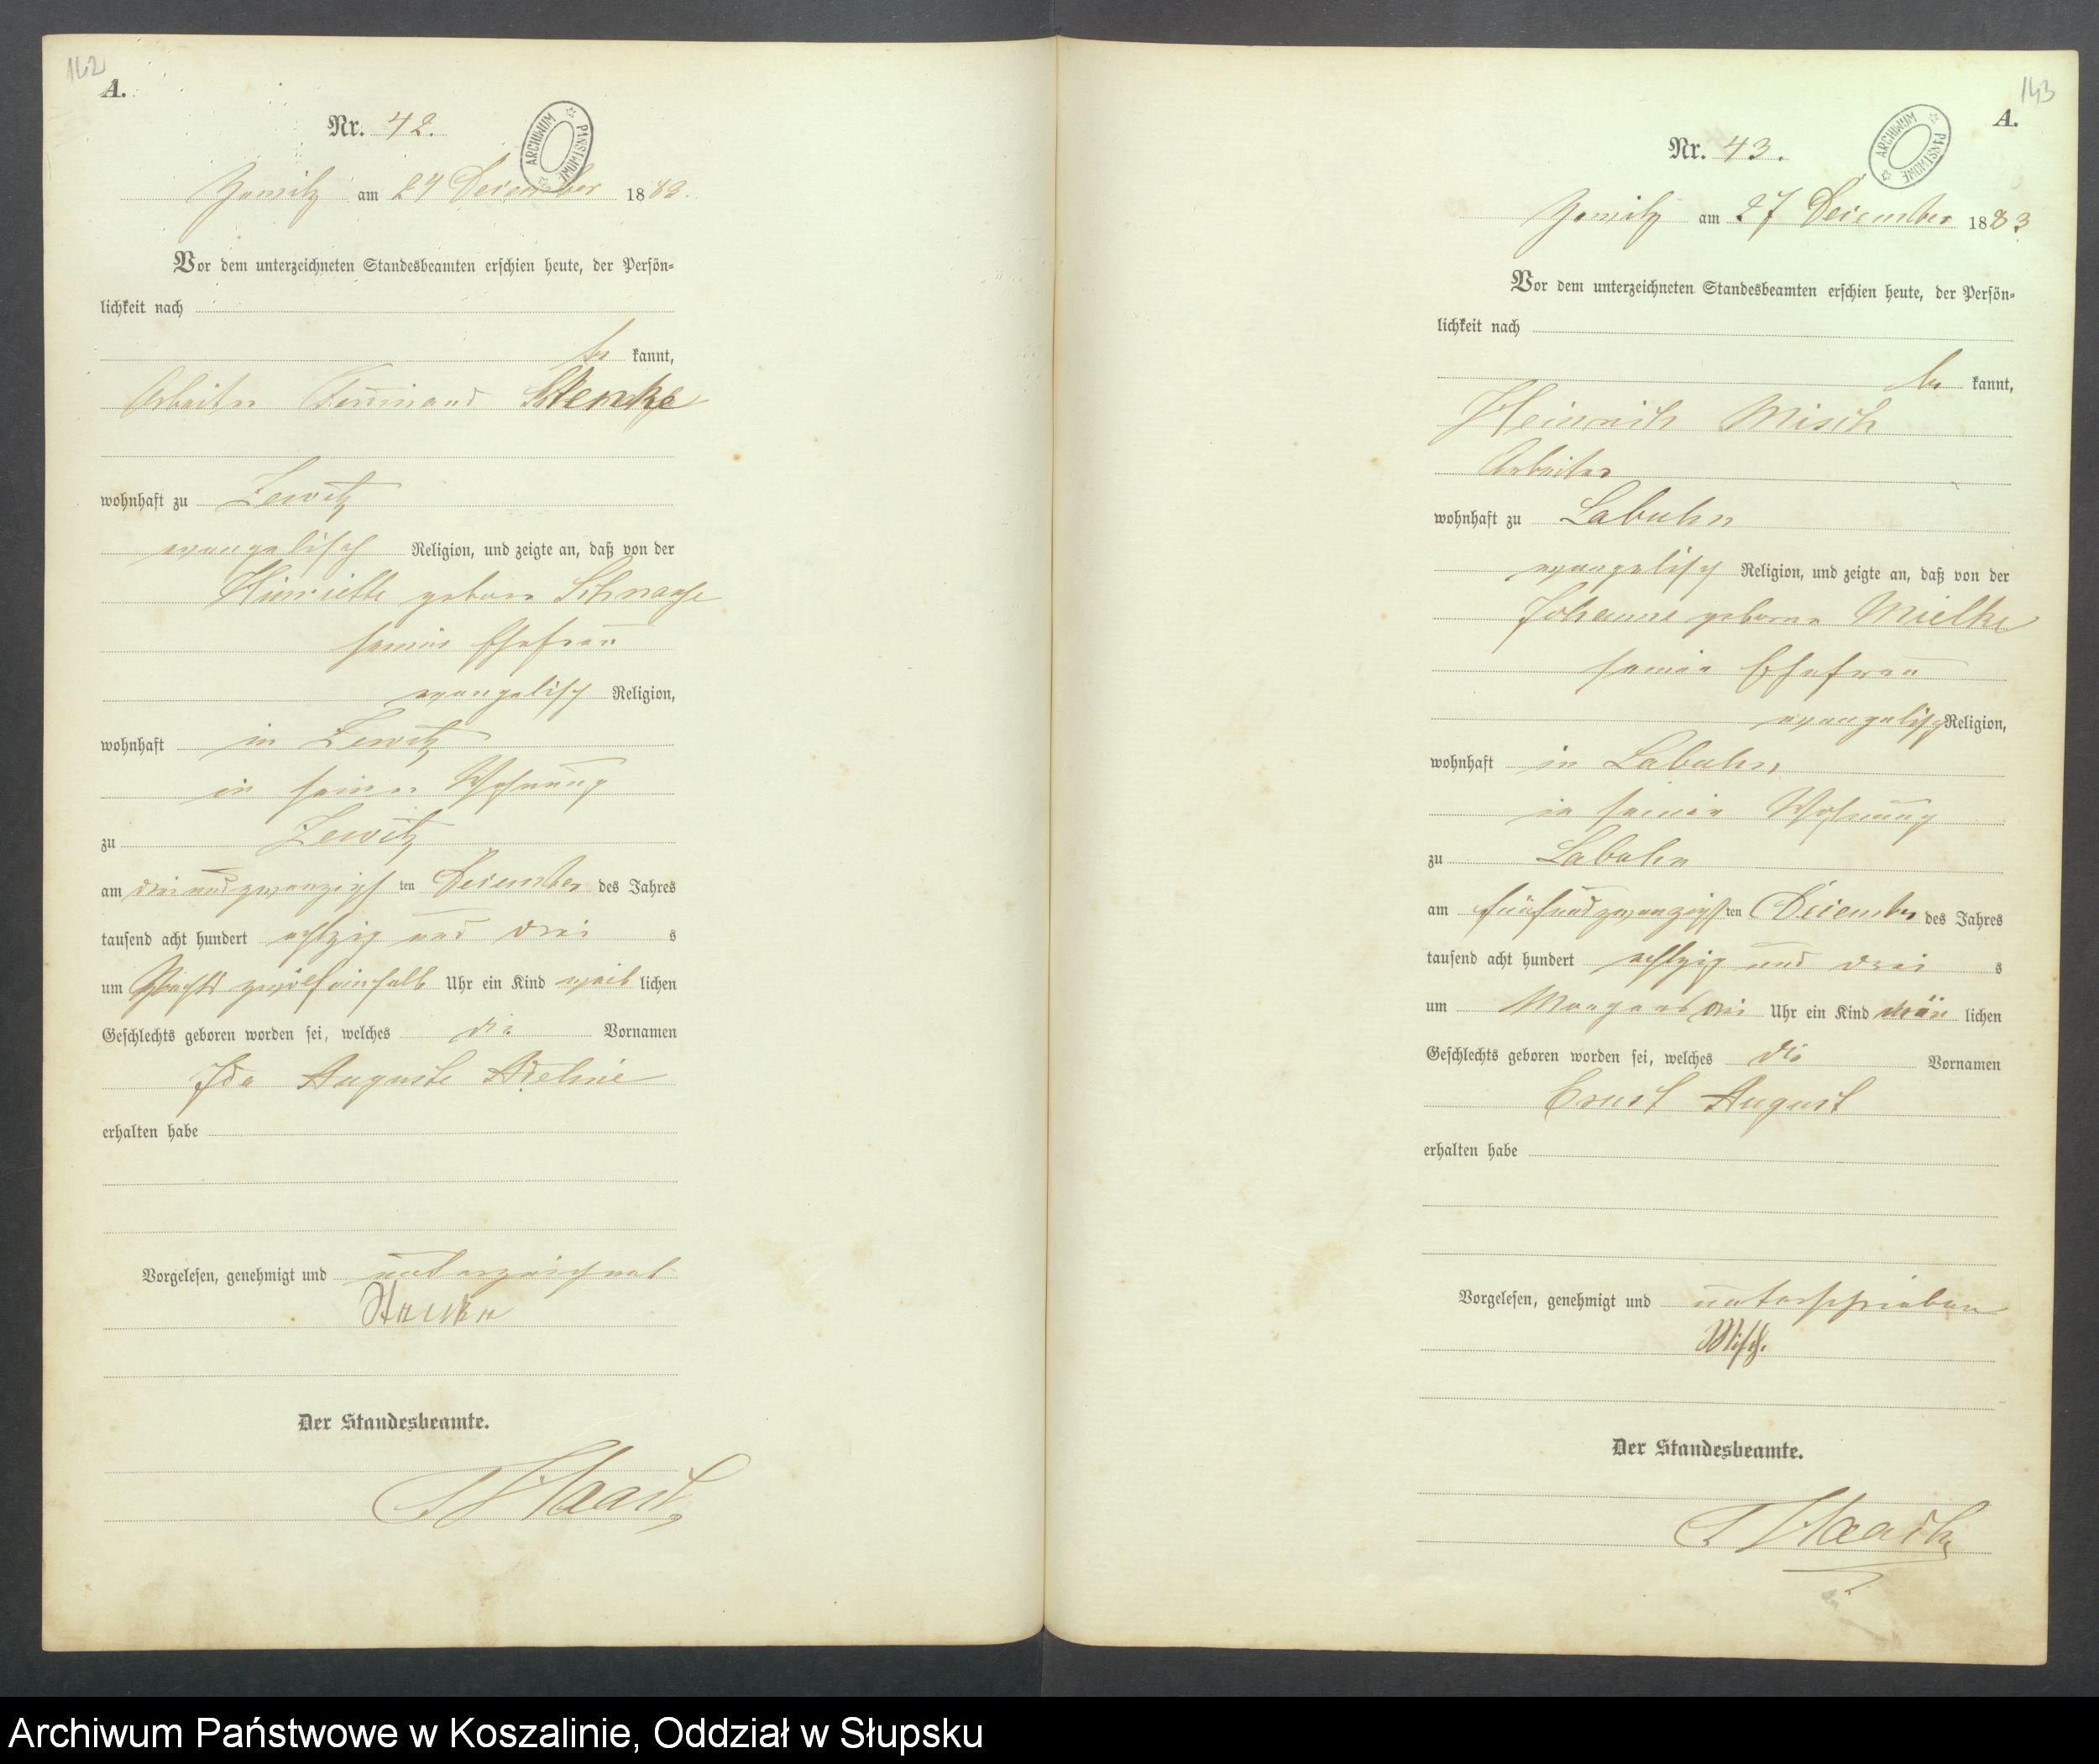 142
A.
Nr. 42.
ARCHIWUM PAŃSTWOWE
am 24 December 1883.
Vor dem unterzeichneten Standesbeamten erschien heute, der Persön-
lichkeit nach
be kannt,
Arbeiter Ferdinand
wohnhaft zu Zewitz
evangelisch Religion, und zeigte an, daß von der
Henriette geborn
seiner Ehefrau
evangelisch Religion,
wohnhaft in Zewitz
in seiner Wohnung
zu Zewitz
am drei und zwanzigsten December des Jahres
tausend acht hundert achtzig und drei s
um Nachts zwölf einhalb Uhr ein Kind weib lichen
Geschlechts geboren worden sei, welches die Vornamen
Ida Auguste Adeline
erhalten habe
Vorgelesen, genehmigt und unterzeichnet
Der Standesbeamte.
143
A.
Nr. 43.
ARCHIWUM PAŃSTWOWE
am 27 December 1883
Vor dem unterzeichneten Standesbeamten erschien heute, der Persön-
lichkeit nach
be kannt,
Heinrich Misch
Arbeiter
wohnhaft zu Labuhn
evangelisch Religion, und zeigte an, daß von der
Johanne geborne Mielke
seiner Ehefrau
evangelisch Religion,
wohnhaft in Labuhn,
in seiner Wohnung
zu Labuhn
am fünfundzwanzigsten December des Jahres
tausend acht hundert achtzig und drei s
um Morgens drei Uhr ein Kind män lichen
Geschlechts geboren worden sei, welches die Vornamen
Ernst August
erhalten habe
Vorgelesen, genehmigt und unterschrieben
Misch.
Der Standesbeamte.
Archiwum Państwowe w Koszalinie, Oddział w Słupsku